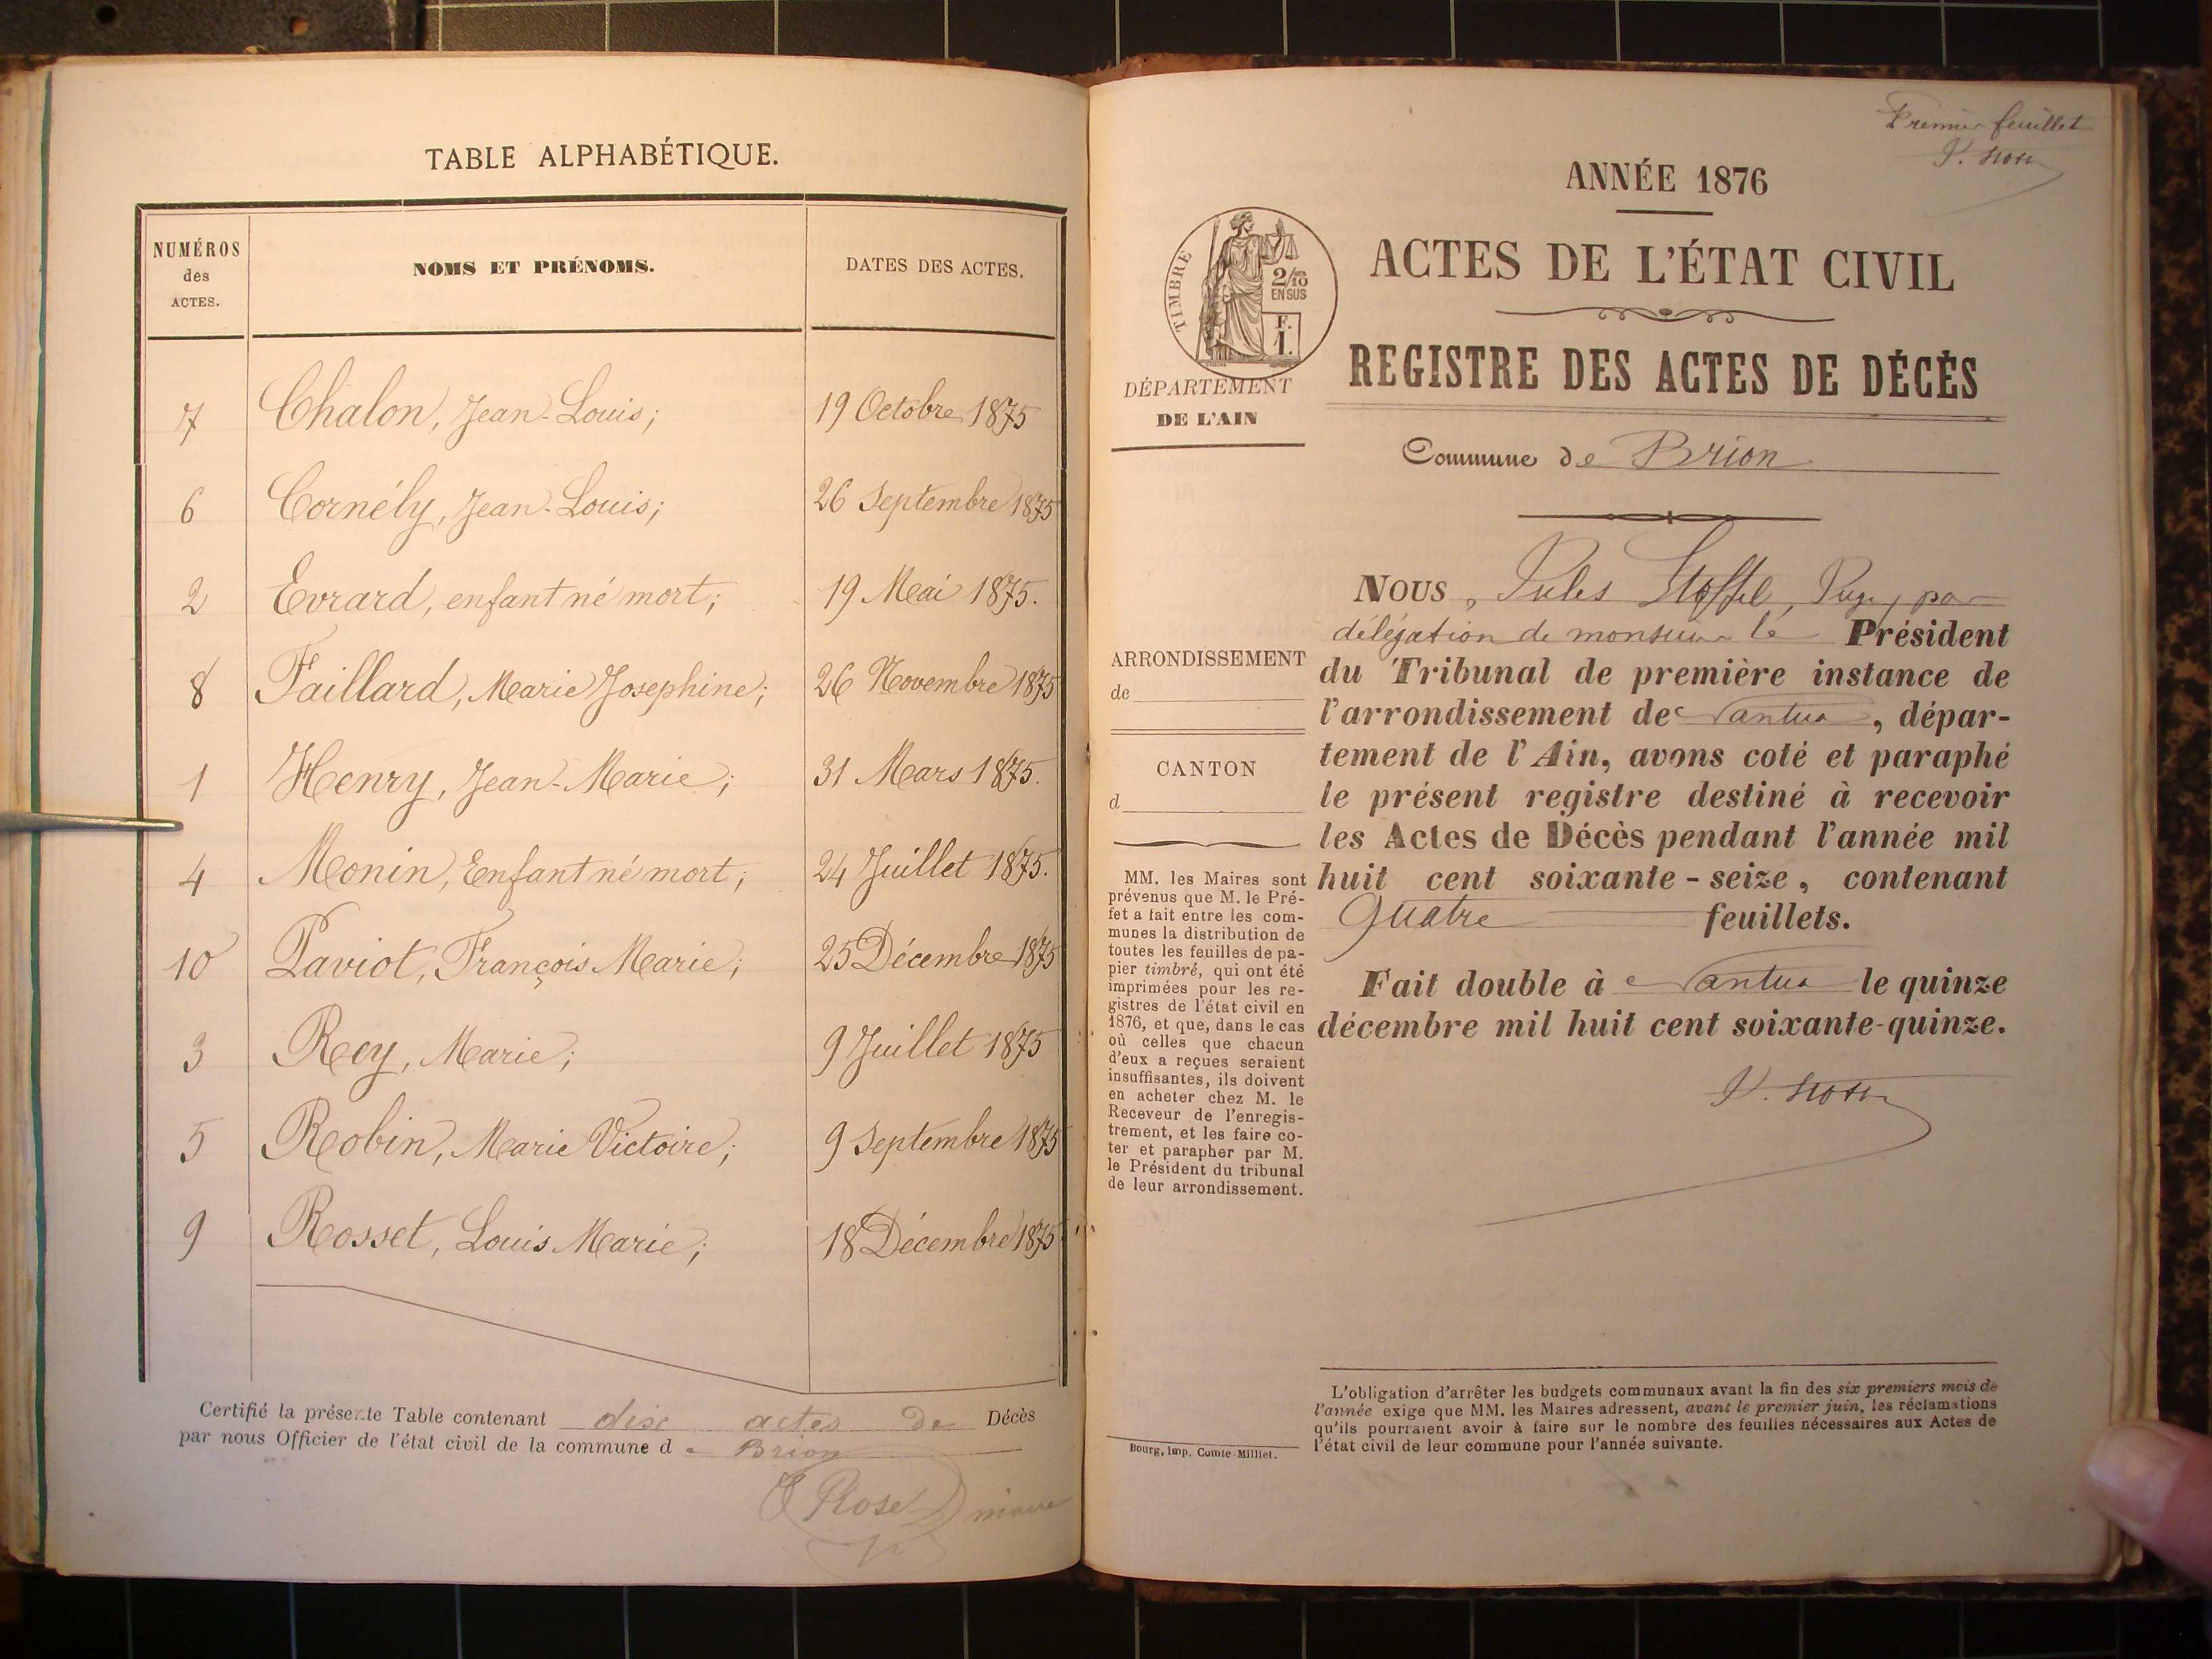 TABLE ALPHABÉTIQUE.
NUMÉROS
des
ACTES.
NOMS ET PRÉNOMS.
DATES DES ACTES.
7 Chalon, Jean-Louis; 19 Octobre 1875
6 Cornély, Jean-Louis; 26 Septembre 1875
2 Evrard, enfant né mort; 19 Mai 1875.
8 Faillard, Marie Josephine; 26 Novembre 1875
1 Henry, Jean-Marie; 31 Mars 1875.
4 Monin, Enfant né mort; 24 Juillet 1875.
10 Paviot, François Marie; 25 Décembre 1875
3 Rey, Marie; 9 Juillet 1875
5 Robin, Marie Victoire; 9 Septembre 1875
9 Rosset, Louis Marie; 18 Décembre 1875
Certifié la présente Table contenant dix actes de Décès
par nous Officier de l'état civil de la commune de Brion
Maire
Premier feuillet
ANNÉE 1876
TIMBRE
2/10
EN SUS
F.
1.
ACTES DE L'ÉTAT CIVIL
REGISTRE DES ACTES DE DÉCÈS
DÉPARTEMENT
DE L'AIN
Commune de Brion
ARRONDISSEMENT
de
CANTON
d
MM. les Maires sont
prévenus que M. le Pré-
fet a fait entre les com-
munes la distribution de
toutes les feuilles de pa-
pier timbré, qui ont été
imprimées pour les re-
gistres de l'état civil en
1876, et que, dans le cas
où celles que chacun
d'eux a reçues seraient
insuffisantes, ils doivent
en acheter chez M. le
Receveur de l'enregis-
trement, et les faire co-
ter et parapher par M.
le Président du tribunal
de leur arrondissement.
Bourg, Imp. Comte-Milliet.
NOUS, Jules Stoffel, Juge, par
délégation de monsieur le Président
du Tribunal de première instance de
l'arrondissement de Nantua, dépar-
tement de l'Ain, avons coté et paraphé
le présent registre destiné à recevoir
les Actes de Décès pendant l'année mil
huit cent soixante-seize, contenant
Quatre feuillets.
Fait double à Nantua le quinze
décembre mil huit cent soixante-quinze.
L'obligation d'arrêter les budgets communaux avant la fin des six premiers mois de
l'année exige que MM. les Maires adressent, avant le premier juin, les réclamations
qu'ils pourraient avoir à faire sur le nombre des feuilles nécessaires aux Actes de
l'état civil de leur commune pour l'année suivante.